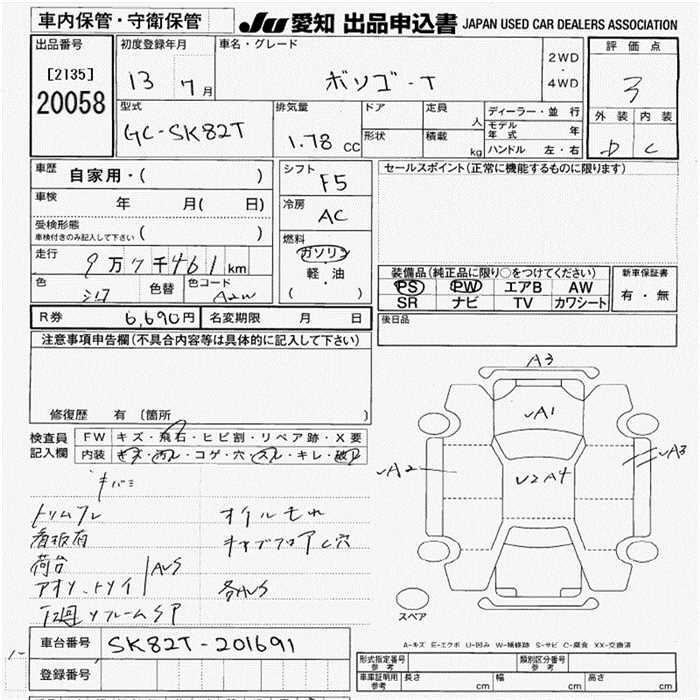 車内保管・守衛保管
JU 愛知 出品申込書 JAPAN USED CAR DEALERS ASSOCIATION
出品番号
[2135]
20058
初度登録年月
13 7月
車名・グレード
ボンゴ-T
2WD
・
4WD
評価点
3
外装 内装
D C
型式
GC-SK82T
排気量
1.78 CC
ドア
形状
定員 人
積載 kg
ディーラー・並行
モデル年式 年
ハンドル 左・右
車歴
自家用・( )
車検
年 月( 日)
受検形態
車検付きのみ記入して下さい ( )
走行
9万7千461km
色
シロ
色替
色コード
A2W
シフト
F5
冷房
AC
燃料
ガソリン
・
軽・油
( )
セールスポイント(正常に機能するものに限ります)
装備品(純正品に限り○をつけてください)
PS PW エアB AW
SR ナビ TV カワシート
新車保証書
有・無
R券 6,690円
名変期限 月 日
後日品
注意事項申告欄(不具合内容等は具体的に記入して下さい)
修復歴 有 〔箇所 〕
検査員記入欄
FW キズ・飛石・ヒビ割・リペア跡・X要
内装 キズ・汚レ・コゲ・穴・スレ・キレ・破レ
キバミ
トリムワレ
オイルモレ
看板有
キャブフロアC穴
荷台
アオリ、トリイ
AUS
各AUS
A3
A1
A2
U2A4
A3
スペア
A-キズ E-エクボ U-凹み W-補修跡 S-サビ C-腐食 XX-交換済
車台番号
SK82T-201691
登録番号
形式指定番号 参考
類別区分番号 参考
車庫証明用 参考
長さ cm
幅 cm
高さ cm